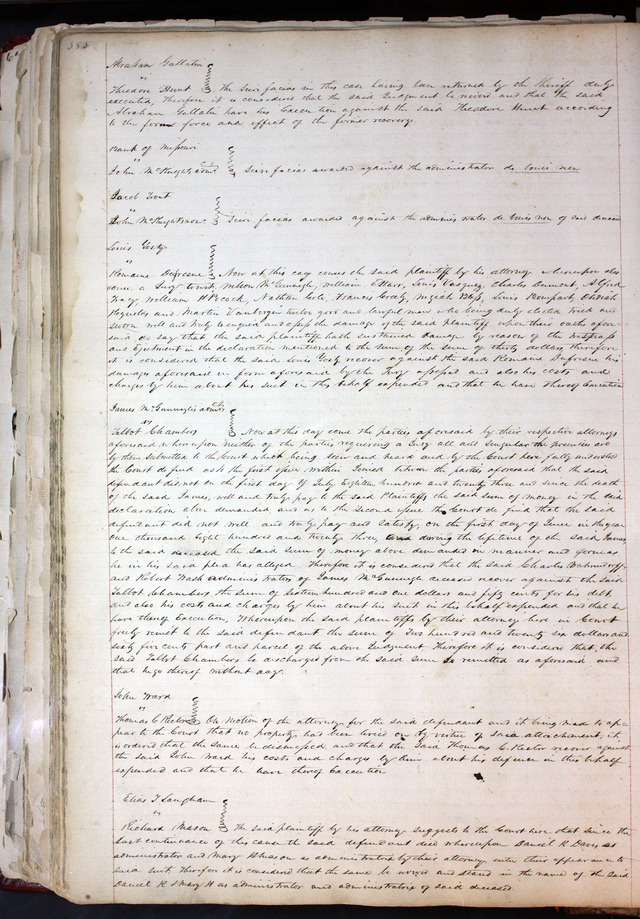 Abraham Gallatin
vs
Theodore Hunt The Scire facias in this case having been returned by the Sheriff duly
executed, Therefore it is considered that the said Judgment be revived and that the said
Abraham Gallatin have his Execution against the said Theodore Hunt according
to the form force and effect of the former recovery.
Bank of Missouri
vs
John McKnights admr. Scire facias awarded against the administrator de bonis non
Jacob
vs
John McKnights admr. Scire facias awarded against the administrator de bonis non of said deceased
Louis
vs
Romaine Dufresne Now at this day comes the said plaintiff by his attorney whereupon also
came a Jury to wit, Nelson McGunnegle, William Starr, Louis Vasquez, Charles Alfred
William H Pocock, Nathan Cole, Frances Louis Bompart, Obediah
Reynolds and Martin twelve good and lawful men who being duly elected tried and
sworn well and truly to enquire and assess the damage of the said plaintiff upon their oaths afore
said do say that the said plaintiff hath sustained damage by reason of the trespass
and Ejectment in the declaration mentioned to the sum of thirty dollars therefore
it is considered that the said Louis recover against the said Romaine Dufresne his
damages aforesaid in form aforesaid by the Jury assessed and also his costs and
charges by him about his suit in this behalf expended and that he have thereof Execution
James McGunnegles admrs
vs
Talbot Chambers Now at this day come the parties aforesaid by their respective attorneys
aforesaid whereupon neither of the parties requiring a Jury all and singular the premises are
by them submitted to the Court which being seen and heard and by the Court here fully understood
the Court do find as to the first issue within Joined between the parties aforesaid that the said
defendant did not on the first day of July Eighteen hundred and twenty three and since the death
of the said James, well and truly pay to the said Plaintiffs the said sum of money in the said
declaration above demanded and as to the second issue the Court do find that the said
defendant did not well and truly pay and satisfy, on the first day of June in the year
one thousand eight hundred and twenty three, during the lifetime of the said James
to the said deceased the said sum of money above demanded in manner and form as
he in his said plea has alleged. Therefore it is considered that the said Charles
and Robert Wash administrators of James McGunnegle deceased recover against the said
Talbot Chambers the sum of Sixteen hundred and one dollars and fifty cents for his debt
and also his costs and charges by him about his suit in this behalf expended and that he
have thereof Execution, Whereupon the said plaintiffs by their attorney here in Court
freely remit to the said defendant the sum of Two hundred and twenty six dollars and
sixty five cents part and parcel of the above Judgment. Therefore it is considered that the
said Talbot Chambers be discharged from the said sum so remitted as aforesaid and
that he go thereof without day.
John Ward
vs
Thomas C Rector On motion of the attorney for the said defendant and it being made to ap-
pear to the Court that no property has been levied on by virtue of said attachment, it
is ordered that the same be dismissed and that the said Thomas C. Rector recover against
the said John Ward his costs and charges by him about his defence in this behalf
expended and that he have thereof Execution
Elias T Langham
vs
Richard Mason The said plaintiff by his attorney suggests to the Court here that since the
last continuance of this cause the said defendant died whereupon Daniel R. Davis as
administrator and Mary H Mason as administratrix by their attorney enter their appearance to
said suit, therefore it is considered that the same be revived and stand in the name of the said
Daniel R & Mary H as administrator and administratrix of said deceased.